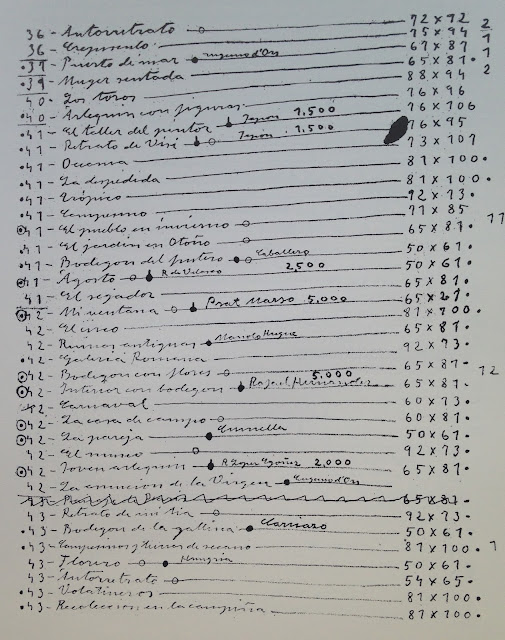 36 - Autorretrato 72 x 92
36 - Crepusculo 75 x 94 2
.37 - Puerto de mar Eugenio d'Ors 67 x 87 1
.39 - Muger sentada 65 x 81. 1
40 - Los toros 88 x 94 2
.40 - Arlequin con figuras 76 x 96
.41 - El taller del pintor Japón 1,500 76 x 106
.41 - Retrato de Visi Japón 1.500 76 x 95
.41 - Oceania 73 x 101
.41 - La despedida 81 x 100.
.41 - Trópico 81 x 100.
.41 - Campesino 92 x 73.
.41 - El pueblo en invierno 71 x 85
.41 - El jardin en Otoño 65 x 81. 11
.41 - Bodegon del puchero Caballero 50 x 61.
.41 - Agosto R de Velasco 2,500 50 x 61.
41 - El segador 65 x 81.
.42 - Mi ventana Prat Marso 5,000 65 x 81.
42 - El circo 81 x 100.
42 - Ruinas antiguas Manolo Hugue 65 x 81.
.42 - Galeria Romana 92 x 73.
.42 - Bodegon con flores 5.000 65 x 81.
.42 - Interior con bodegon Rafael Hernandez 65 x 81. 12
42 - Carnaval 60 x 73.
.42 - La casa de campo 60 x 81.
.42 - La pareja 50 x 61.
42 - El museo 92 x 73.
.42 - Joven arlequin 2,000 65 x 81.
42 - La asuncion de la Virgen Eugenio d'Ors
65 x 81.
43 - Retrato de mi tia 92 x 73.
.43 - Bodegon de la gallina 50 x 61.
.43 - Campesinos y tierras de secano 81 x 100. 1
43 - Florero Hungria 50 x 61.
43 - Autorretrato 54 x 65.
.43 - Volatineros 81 x 100.
.43 - Recoleccion en la campiña 81 x 100.